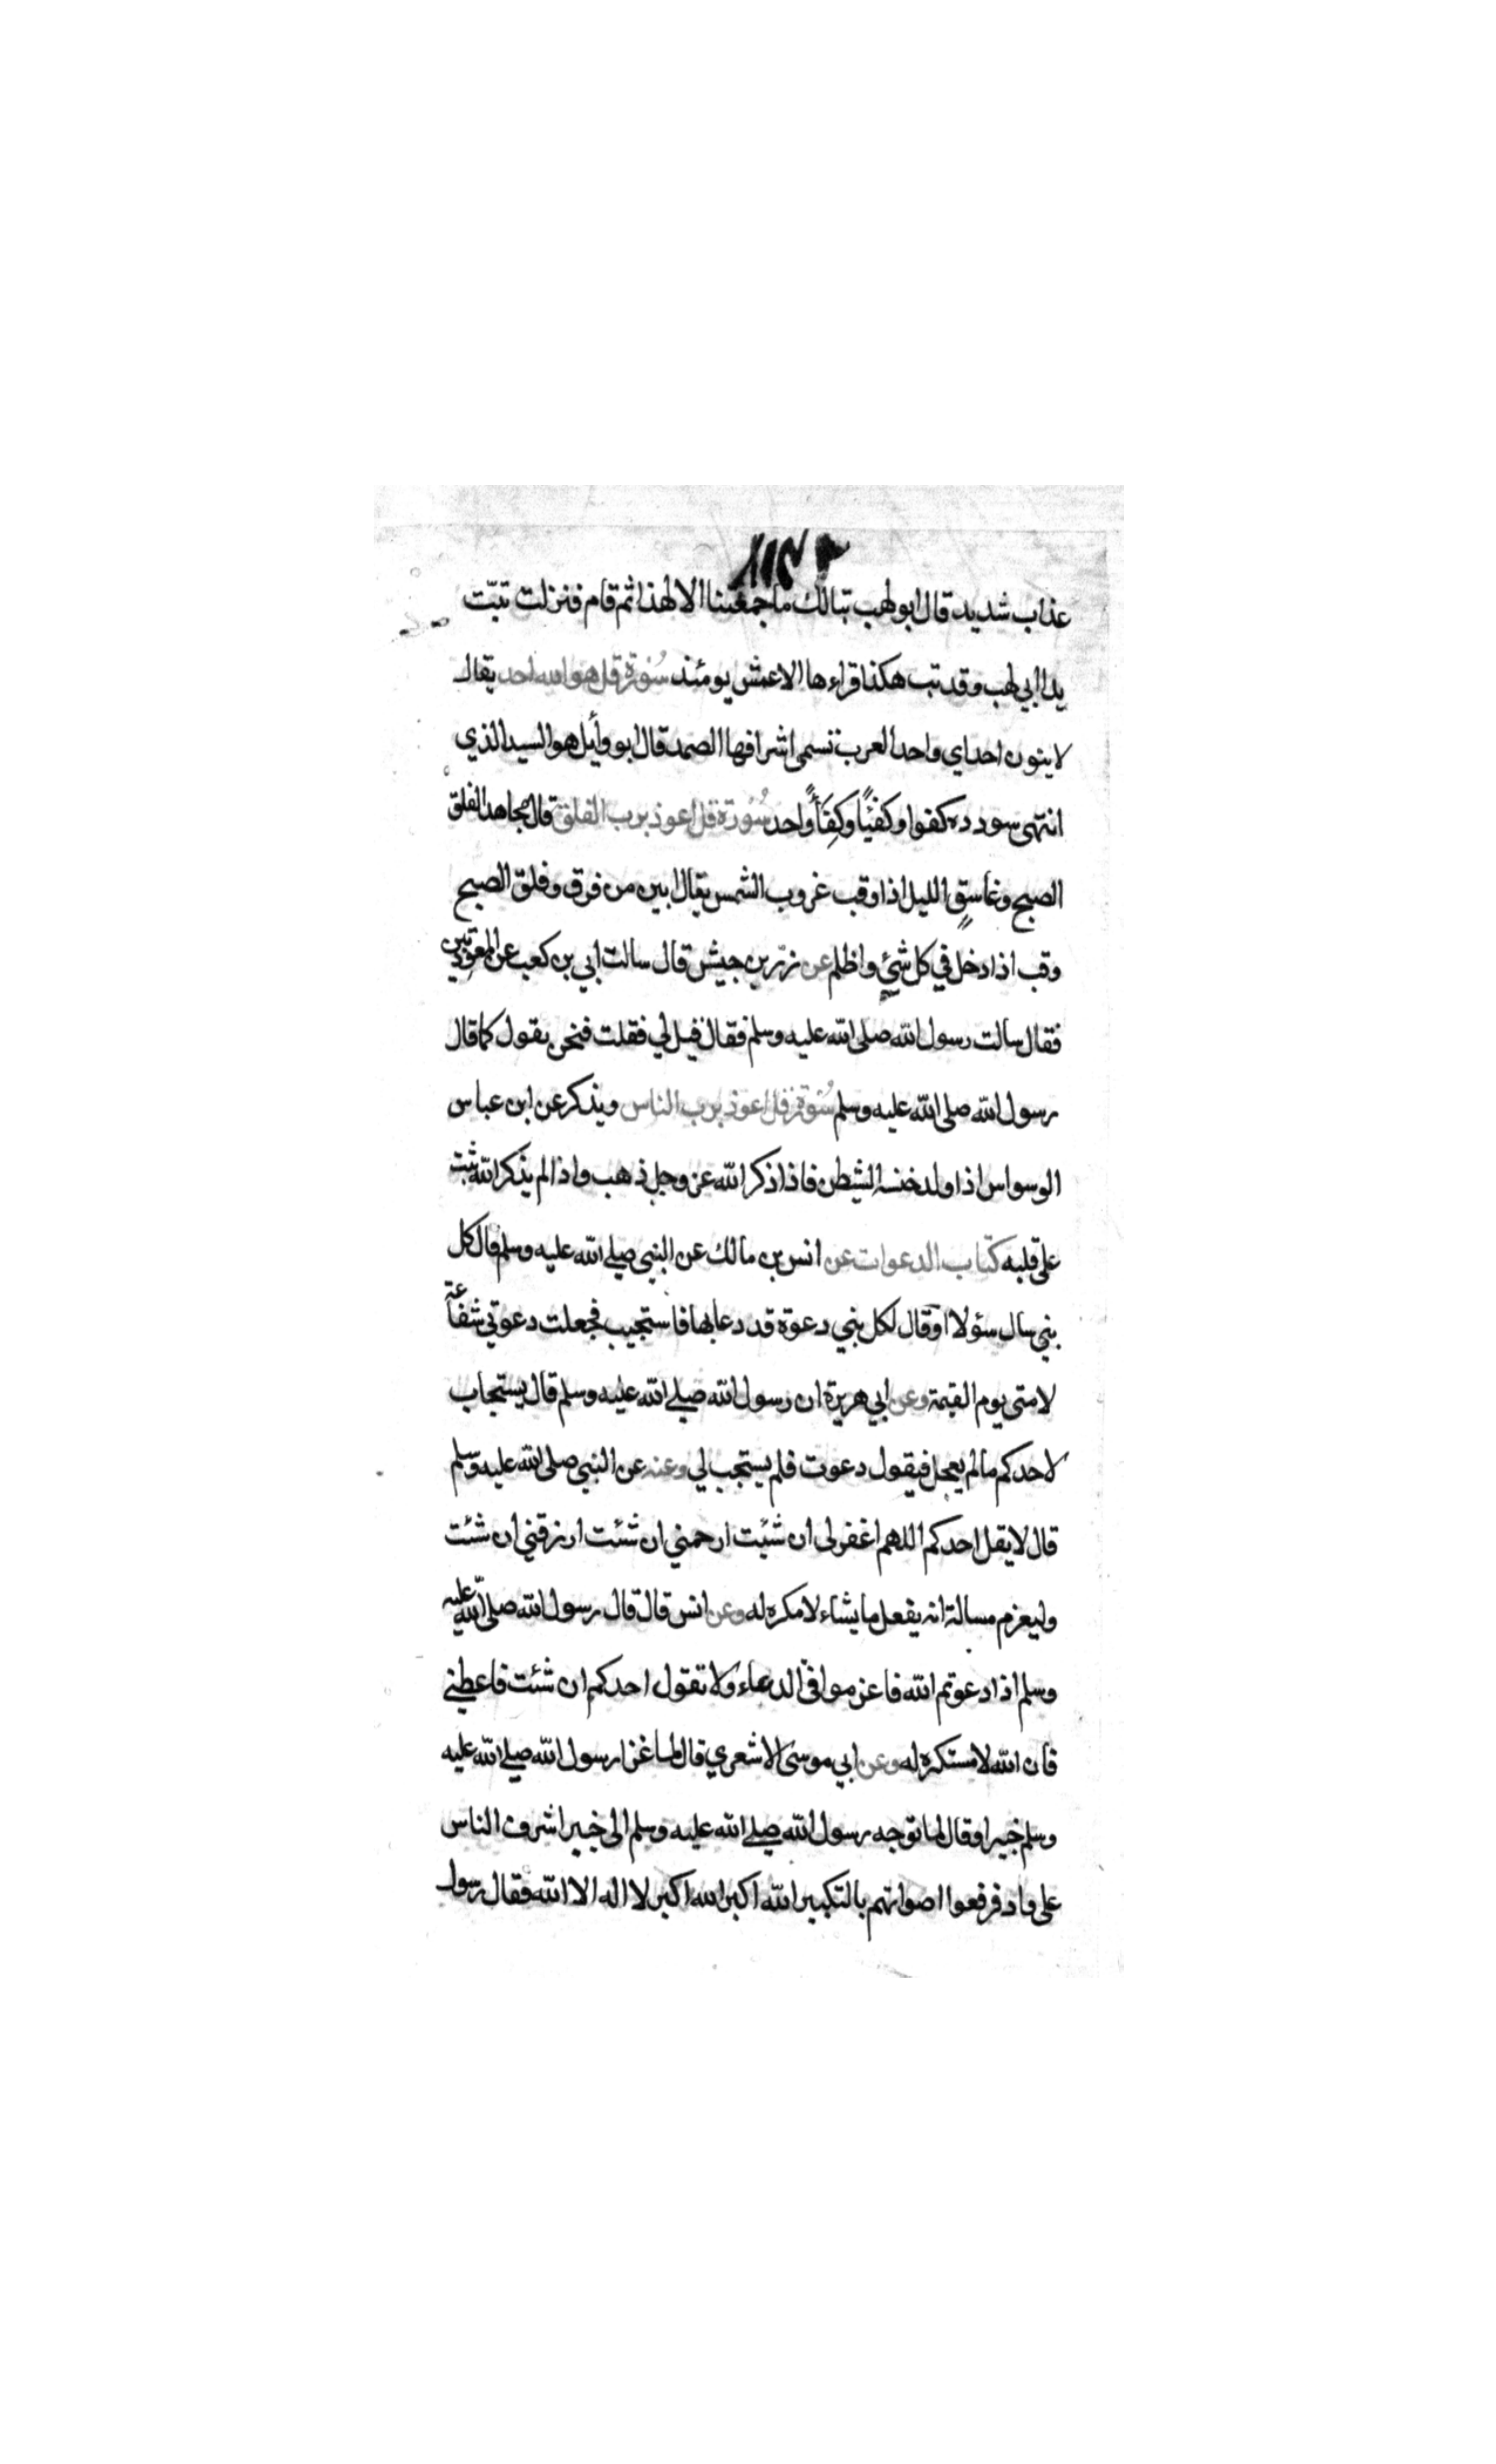 عذاب شديد قال ابو لهب تبالك ما جمعتنا الا لهذا ثم قام فنزلت تبّت
يدا ابي لهب وقد تب هكذا قراءها الاعمش يومئذ سُورة قل هو الله احد يقال
لا ينون احد اي واحد العرب تسمى اشرافها الصمد قال ابو وأيل هو السيد الذي
انتهى سودده كفوا وكفيًا وكِفَأً واحد سُورة قل اعوذ برب الفلق قال مجاهد الفلق
الصبح وغاسقٍ الليل اذا وقب غروب الشمس يقال ابين من فرق وفلق الصبح
وقب اذا دخل في كل شيءٍ واظلم عن زرّ بن حبيش قال سالت ابي بن كعب عن المعوذتين
فقال سالت رسول الله صلى الله عليه وسلم فقال قيل لي فقلت فنحن نقول كما قال
رسول الله صلى الله عليه وسلم سُورة قل اعوذ برب الناس ويذكر عن ابن عباس
الوسواس اذا ولد خنسه الشيطن فاذا ذكر الله عز وجل ذهب واذا لم يذكر الله ثبت
على قلبه كتاب الدعوات عن انس بن مالك عن النبي صلى الله عليه وسلم قال كل
نبي سال سؤلا او قال لكل نبي دعوة قد دعا بها فاستجيب فجعلت دعوتي شفاعة
لامتى يوم القيمة وعن ابي هريرة ان رسول الله صلى الله عليه وسلم قال يستجاب
لاحدكم ما لم يعجل فيقول دعوت فلم يستجب لي وعنه عن النبي صلى الله عليه وسلم
قال لا يقل احدكم اللهم اغفر لى ان شئت ارحمني ان شئت ارزقني ان شئت
وليعزم مسالة انه يفعل ما يشاء لا مكره له وعن انس قال قال رسول الله صلى الله عليه
وسلم اذا دعوتم الله فاعزموا في الدعاء ولا تقول احدكم ان شئت فاعطني
فان الله لا مستكره له وعن ابي موسى الاشعري قال لما غزا رسول الله صلى الله عليه
وسلم خيبر او قال لما توجه رسول الله صلى الله عليه وسلم الى خيبر اشرف الناس
على واد فرفعوا اصواتهم بالتكبير الله اكبر الله اكبر لا اله الا الله فقال رسول